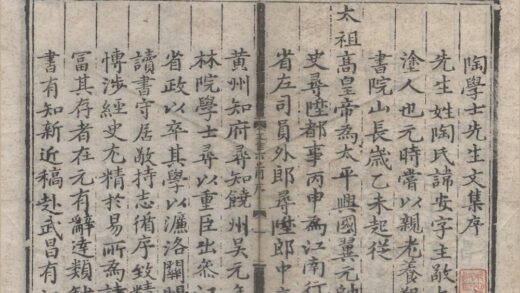 陶學士先生文集序
先生姓陶氏諱安字主敬
塗人也元時嘗以親老養
書院山長歲乙未起從
太祖高皇帝為太平興國翼元帥
史尋陞都事丙申為江南行
省左司員外郎尋陞郎中
黄州知府尋知饒州吳元年
林院學士尋以重臣出叅江
省政以卒其學以濂洛關
讀書守居敬持志循序致精
愽涉經史尤精於易所為詩
冨其存者在元有辭達類鈔
書有知新近稿赴武昌有江